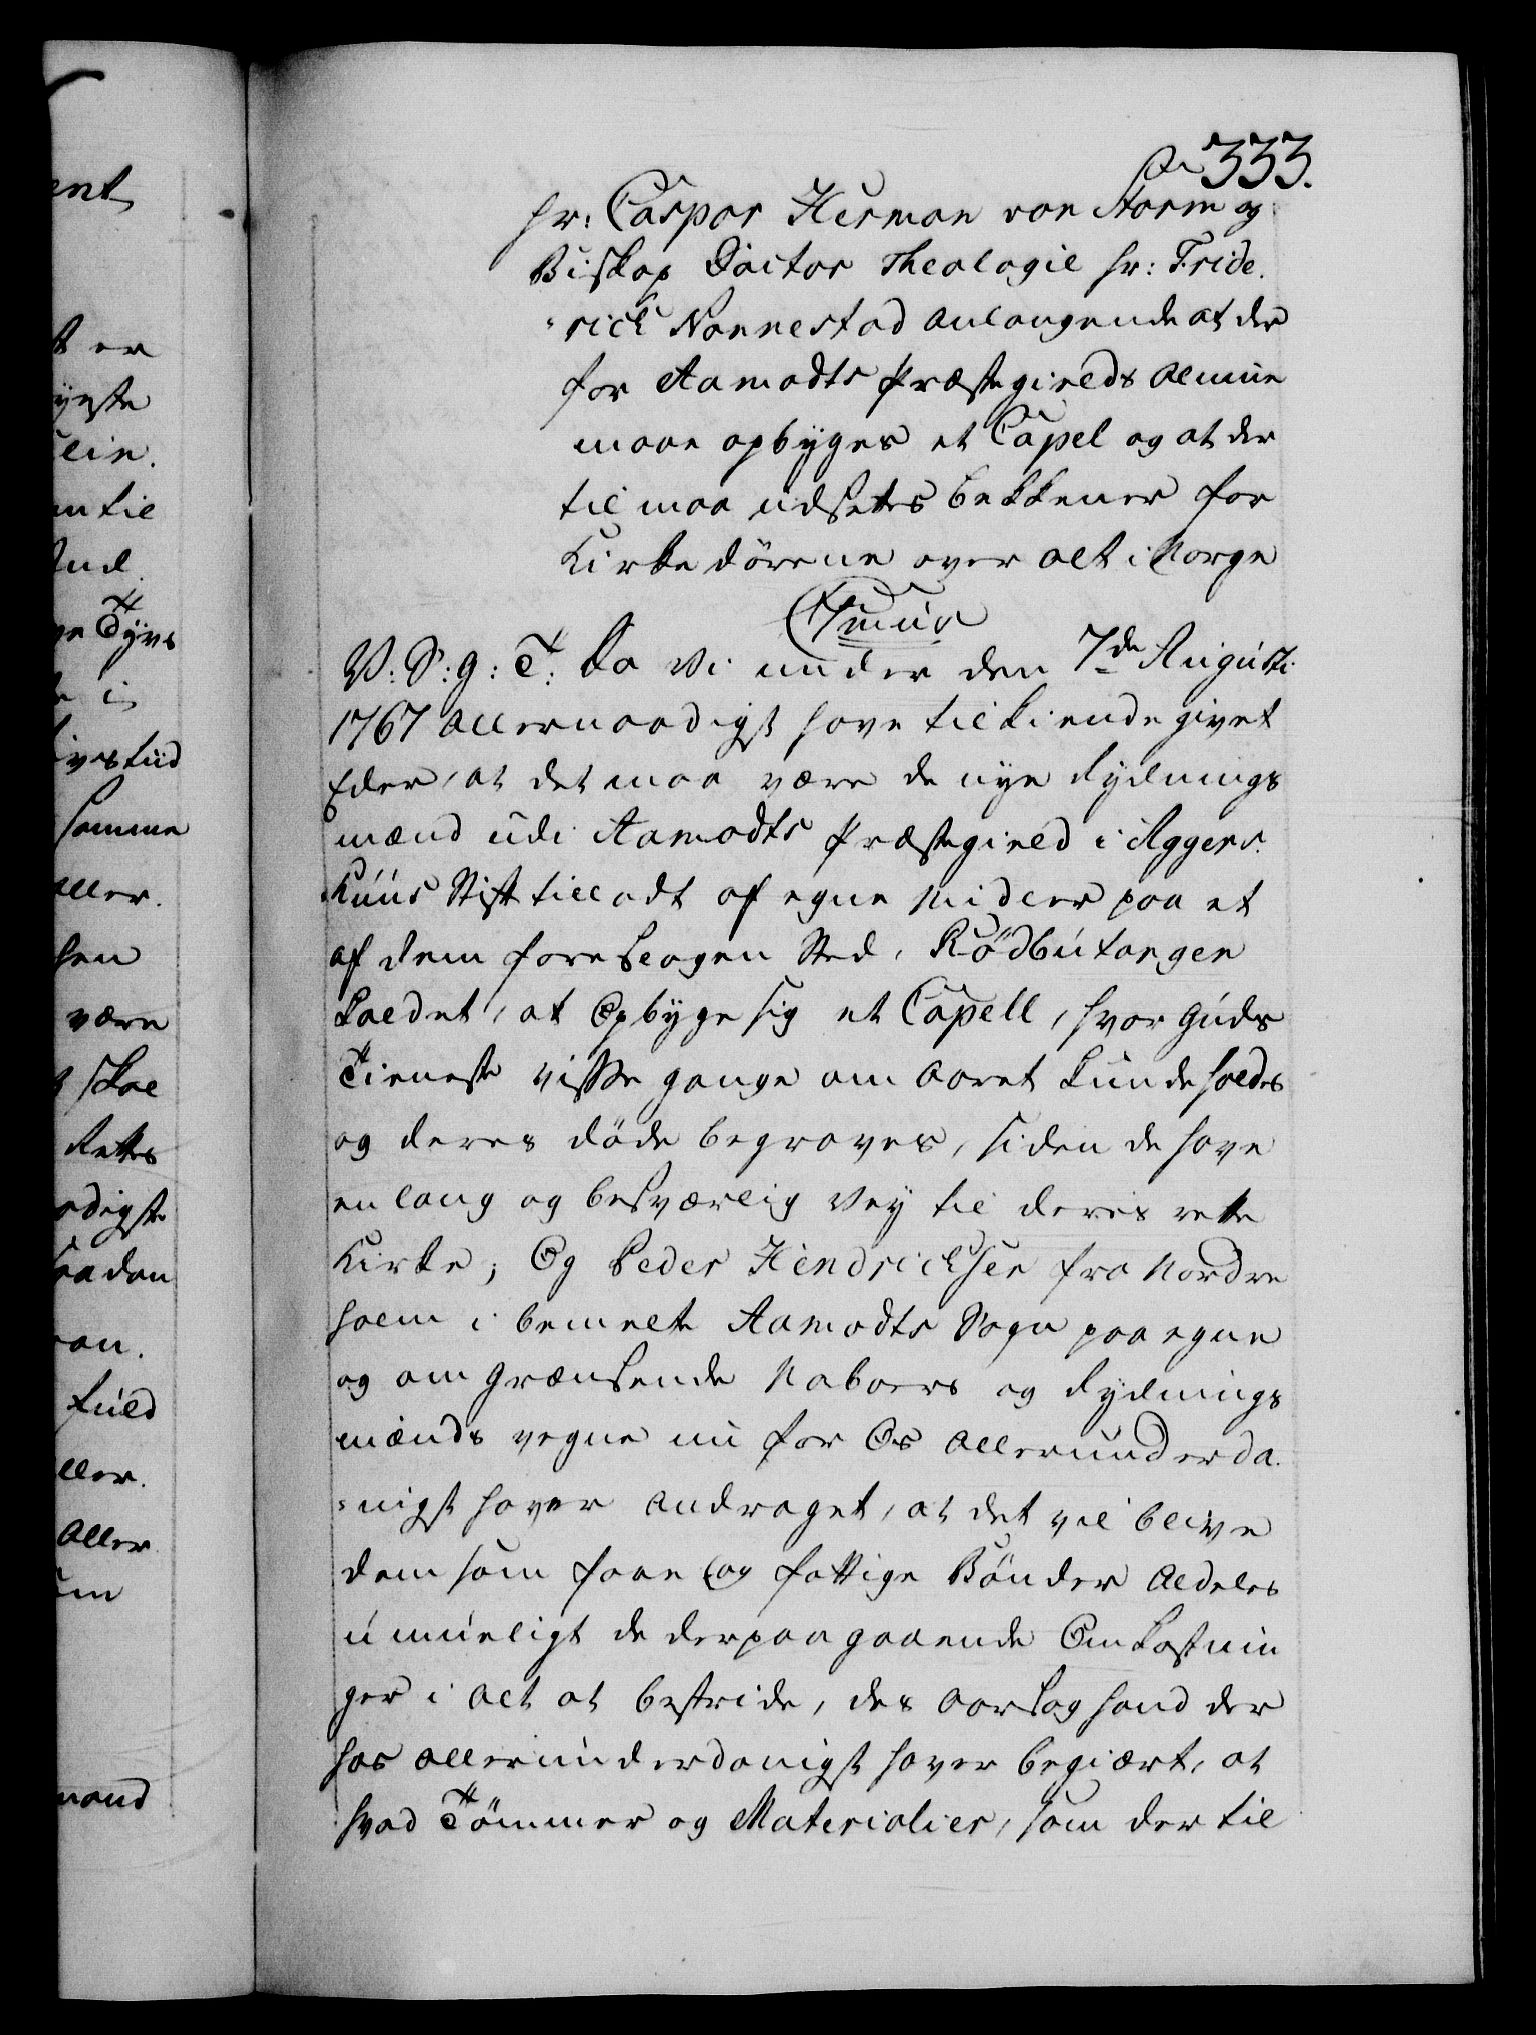 333.
Hr: Caspar Herman von Storm og
Biskop Doctor Theologie Hr: Fride-
-rich Nannestad anlangende at der
for Aamodts Præstegields Almue
maae opbyges et Capel og at der
til maa udsættes Bekkener for
Kirke dörene over alt i Norge
V: S: g: T: Da Vi under den 7de Augusti
1767 Allernaadigst have tilkiende givet
Eder, at det maa være de nye Rydnings
mænd udi Aamodts Præstegield i Agger-
huus Stift tilladt af egne Midler paa et
af dem foreslagen Sted, Rödbutangen
kaldet, at Opbyge sig et Capell, hvor Guds
Tieneste visse gange om Aaret kunde holdes
og deres döde begraves, siden de have
en lang og besværlig Vey til deres rette
Kirke; Og Peder Hendrichsen fra Nordre
holm i bemelte Aamodts Sogn paa egne
og om grændsende Naboers og Rydnings
mænds vegne nu for Os Allerunderda-
-nigst haver andraget, at det vil blive
dem som faae og fattige Bönder Aldeles
umueligt de derpaa gaaende Omkostnin
ger i Alt at bestride, des Aarsag hand der
hos Allerunderdanigst haver begiært, at
hvad Tömmer og Materialier, som der til
ent
er
til
Tyvs
i
tiid
samme
Aller-
være
skal
Rettes
fuld
Aller
mand